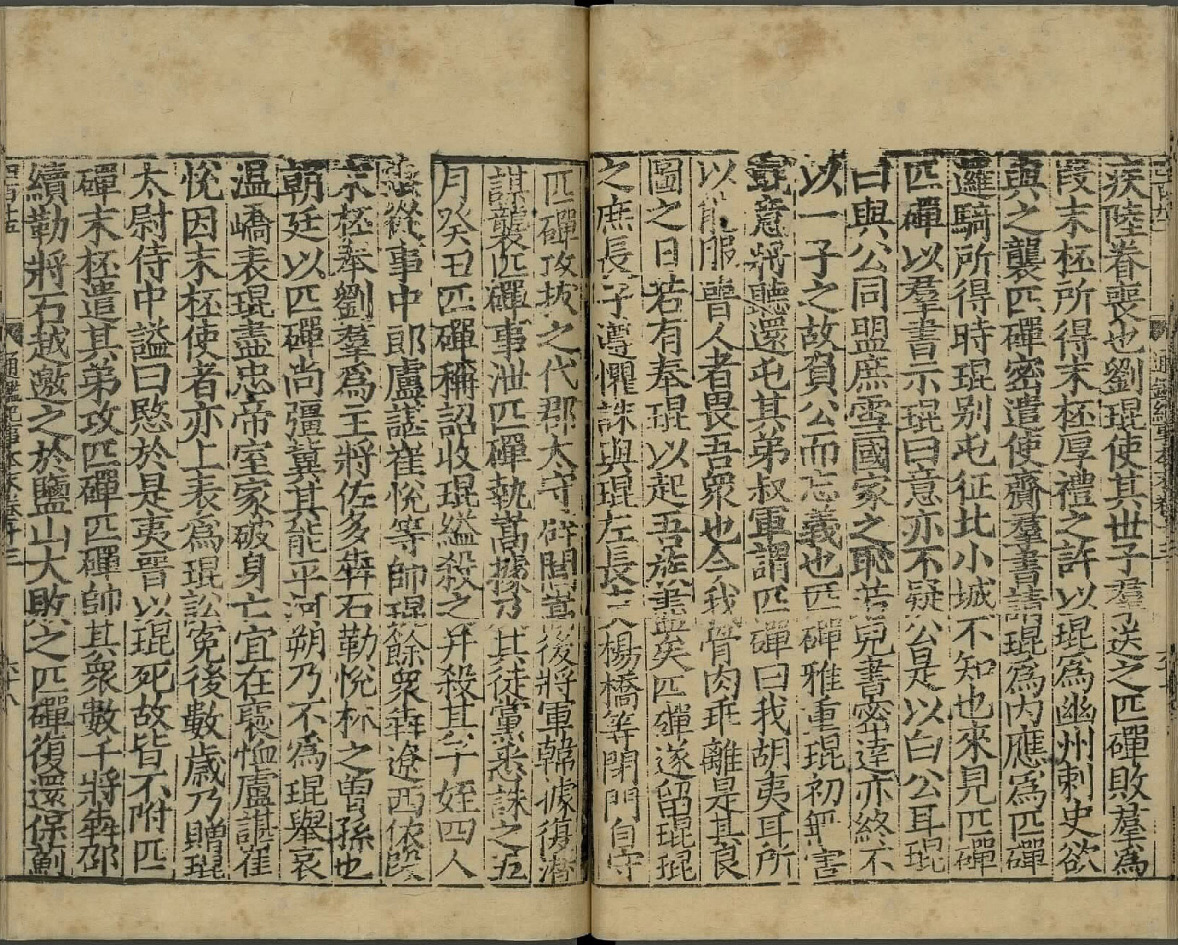 疾陸眷喪也劉琨使其世子羣送之匹磾敗羣爲
段末柸所得末柸厚禮之許以琨爲幽州刺史欲
與之襲匹磾密遣使齎羣書請琨爲内應爲匹磾
邏騎所得時琨别屯征北小城不知也來見匹磾
匹磾以羣書示琨曰意亦不疑公是以白公耳琨
曰與公同盟庶雪國家之恥若兒書密逹亦終不
以一子之故負公而忘義也匹磾雅重琨初無害
琨意將聽還屯其弟叔軍謂匹磾曰我胡夷耳所
以能服晉人者畏吾衆也今我骨肉乖離是其良
圖之日若有奉琨以起吾族盡矣匹磾遂留琨琨
之庶長子遵懼誅與琨左長史楊橋等閉門自守
匹磾攻拔之代郡太守辟閭嵩後將軍韓據復潛
謀襲匹磾事泄匹磾執嵩據乃其徒黨悉誅之五
月癸丑匹磾稱詔收琨縊殺之并殺其子姪四人
琨從事中郎盧諶崔悅等帥琨餘衆奔遼西依段
末柸奉劉羣爲主將佐多奔石勒悅林之曽孫也
朝廷以匹磾尚彊冀其能平河朔乃不爲琨舉哀
温嶠表琨盡忠帝室家破身亡宜在襃恤盧諶崔
悅因末柸使者亦上表爲琨訟寃後數歲乃贈琨
太尉侍中謚曰愍於是夷晉以琨死故皆不附匹
磾末柸遣其弟攻匹磾匹磾帥其衆數千將奔邵
續勒將石越邀之於鹽山大敗之匹磾復還保薊